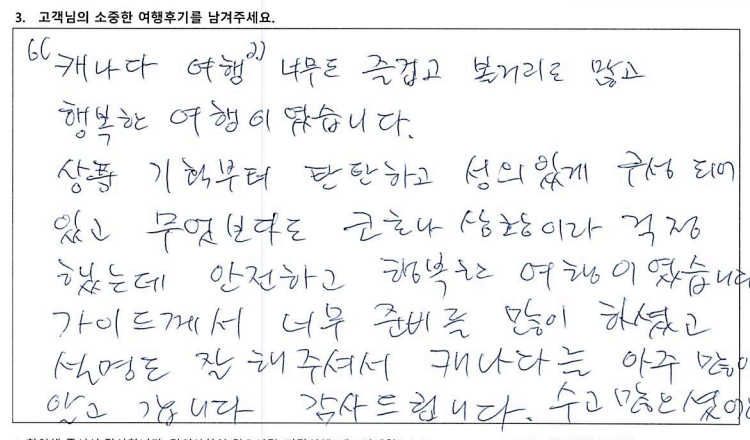 3. 고객님의 소중한 여행후기를 남겨주세요.
캐나다 여행 너무도 즐겁고 볼거리도 많고
행복한 여행이였습니다.
상품 기획부터 탄탄하고 성의있게 구성 되어
있고 무엇보다도 코로나 상황이라 걱정
했는데 안전하고 행복한 여행이였습니다
가이드께서 너무 준비를 많이 하셨고
설명도 잘 해주셔서 캐나다를 아주 많이
알고 갑니다 감사드립니다. 수고 많으셨어